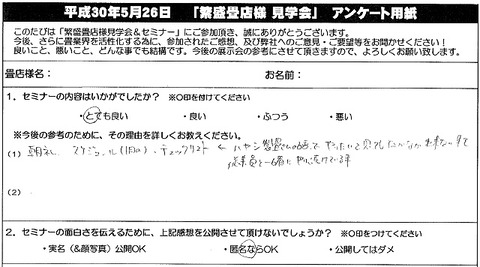 平成30年5月26日 「繁盛畳店様 見学会」 アンケート用紙
このたびは「繁盛畳店様見学会&セミナー」にご参加頂き、誠にありがとうございます。
今後、さらに畳業界を活性化する為に、参加されたご感想、及び弊社へのご意見・ご要望等をお聞かせください!
良いこと、悪いこと、どんな事でも結構です。今後の展示会の参考にさせて頂きますので、よろしくお願い致します。
畳店様名: お名前:
1. セミナーの内容はいかがでしたか? ※○印を付けてください
・とても良い ・良い ・ふつう ・悪い
※今後の参考のために、その理由を詳しくお教えください。
(1) 朝礼、スケジュール(1日の)、チェックリスト ←
(2)
2. セミナーの面白さを伝えるために、上記感想を公開させて頂けないでしょうか? ※○印をつけてください
・実名(&顔写真)公開OK ・匿名ならOK ・公開してはダメ